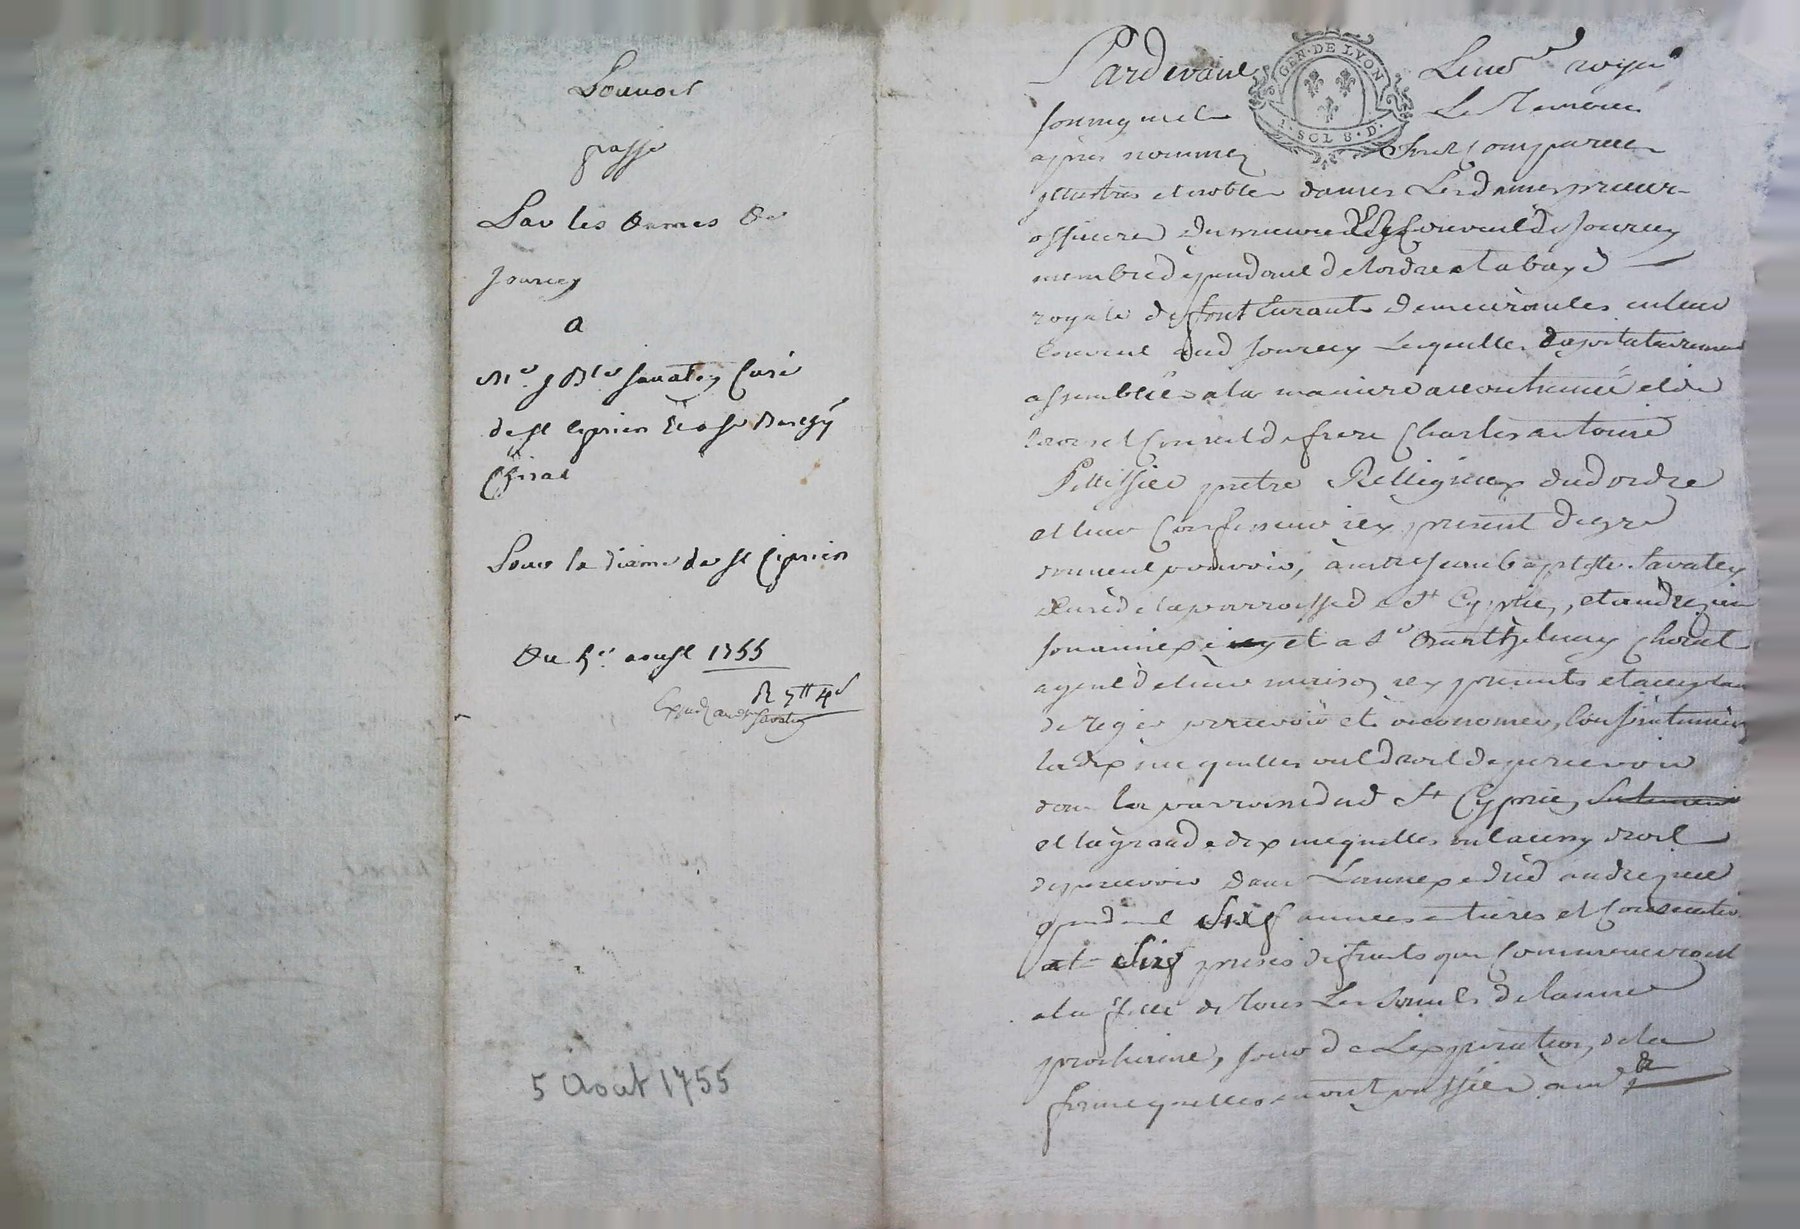 Pouvoir
passé
Par les dames de
Jourcey
a
Mre J Bte Savatey Curé
de st Ciprien Et a sr Barthy
Chirat
Pour la dixme de st Ciprien
Du 5e aoust 1755
R 7tt 4d
5 Août 1755
GEN. DE LYON
1. SOL 8. D.
Pardevant Le nore royal
soussigné Les temoins
après nommez Sont Comparues
illustres et nobles dames Les dames prieure
officieres du prieuré Couvent de Jourcey
membre dependant de lordre et abaye
royale de fontevraults demeurantes en leur
Couvent dud Jourcey Lesquelles Capitulairement
assemblées a la maniere accoutumée et de
lavis et Conseil de frere Charles antoine
Pellissier pretre Relligieux dud ordre
et leur Confesseur icy present de gré
donnent pouvoir, à mre Jean baptiste Savatey
Curé de la parroisse de St Cyprien, et andrezieu
son annexe icy et a Sr Barthelemy Chirat
agent de leur maison icy presents et acceptant
de regir percevoir et oeconomer, Conjointement
la dixme quelles ont droit de percevoir
dans la parroisse dud St Cyprien
et la grande dixme quelles ont aussy droit
de percevoir dans L'annexe dud andrezieu
pendant Six années entieres et Consecutives
et Six prises de fruits qui Commenceront
a la fete de tous Les Saints de lannee
prochaine, jour de Lexpiration, de la
ferme quelles en ont passée à md